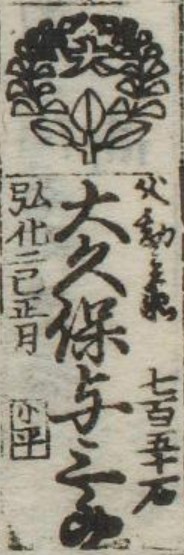 大
父 勘三郎 七百五十石
大久保与三郎
弘化二巳正月 小平